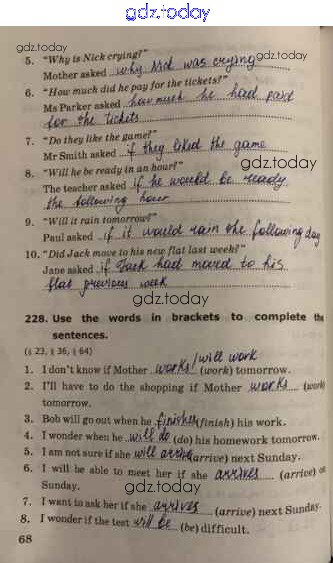 gdz.today
5. "Why is Nick crying?"
Mother asked why Nick was crying
gdz.today
6. "How much did he pay for the tickets?"
Ms Parker asked how much he had paid
for the tickets
7. "Do they like the game?"
Mr Smith asked if they liked the game
gdz.today
8. "Will he be ready in an hour?"
The teacher asked if he would be ready
the following hour
9. "Will it rain tomorrow?"
Paul asked if it would rain the following day
10. "Did Jack move to his new flat last week?"
Jane asked if Jack had moved to his
flat previous week
gdz.today
228. Use the words in brackets to complete the
sentences.
(§ 23, § 36, § 64)
1. I don't know if Mother works/will work (work) tomorrow.
2. I'll have to do the shopping if Mother works (work)
tomorrow.
3. Bob will go out when he finishes (finish) his work.
4. I wonder when he will do (do) his homework tomorrow.
5. I am not sure if she will arrive (arrive) next Sunday.
6. I will be able to meet her if she arrives (arrive) on
Sunday.
gdz.today
7. I want to ask her if she arrives (arrive) next Sunday.
8. I wonder if the test will be (be) difficult.
68
gdz.today